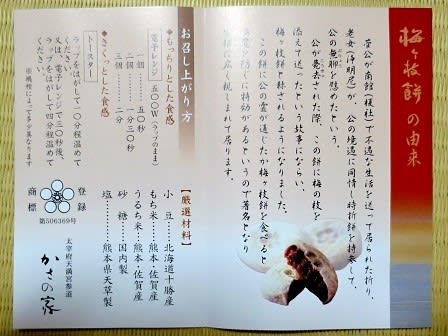 梅ヶ枝餅の由来
菅公が南館（榎社）で不遇な生活を送って居られた折り、
老女（浄明尼）が、公の境遇に同情し時折餅を持参して、
公の無聊を慰めたという。
公が薨去された際、この餅に梅の枝を
添えて送ったという故事にならい、
梅ヶ枝餅と称されるようになりました。
この餅に公の霊が通じたか梅ヶ枝餅を食べると
防ぐに特効があるというので著名となり
広く親しまれて居ります。
【厳選材料】
小豆…北海道十勝産
もち米…熊本・佐賀産
うるち米…熊本・佐賀産
砂糖…国内製
塩…熊本県天草製
お召し上がり方
◆もっちりとした食感
電子レンジ 五〇〇W（ラップのまま）
一個…五〇秒
二個…一分三〇秒
三個…二分
◆さくっとした食感
トースター
ラップをはがして一〇分程温めて
ください。
又は、電子レンジで三〇秒後、
ラップをはがして四分程温めて
ください。
※機種によって多少異なります
登録
商標
第506369号
太宰府天満宮参道
かさの家